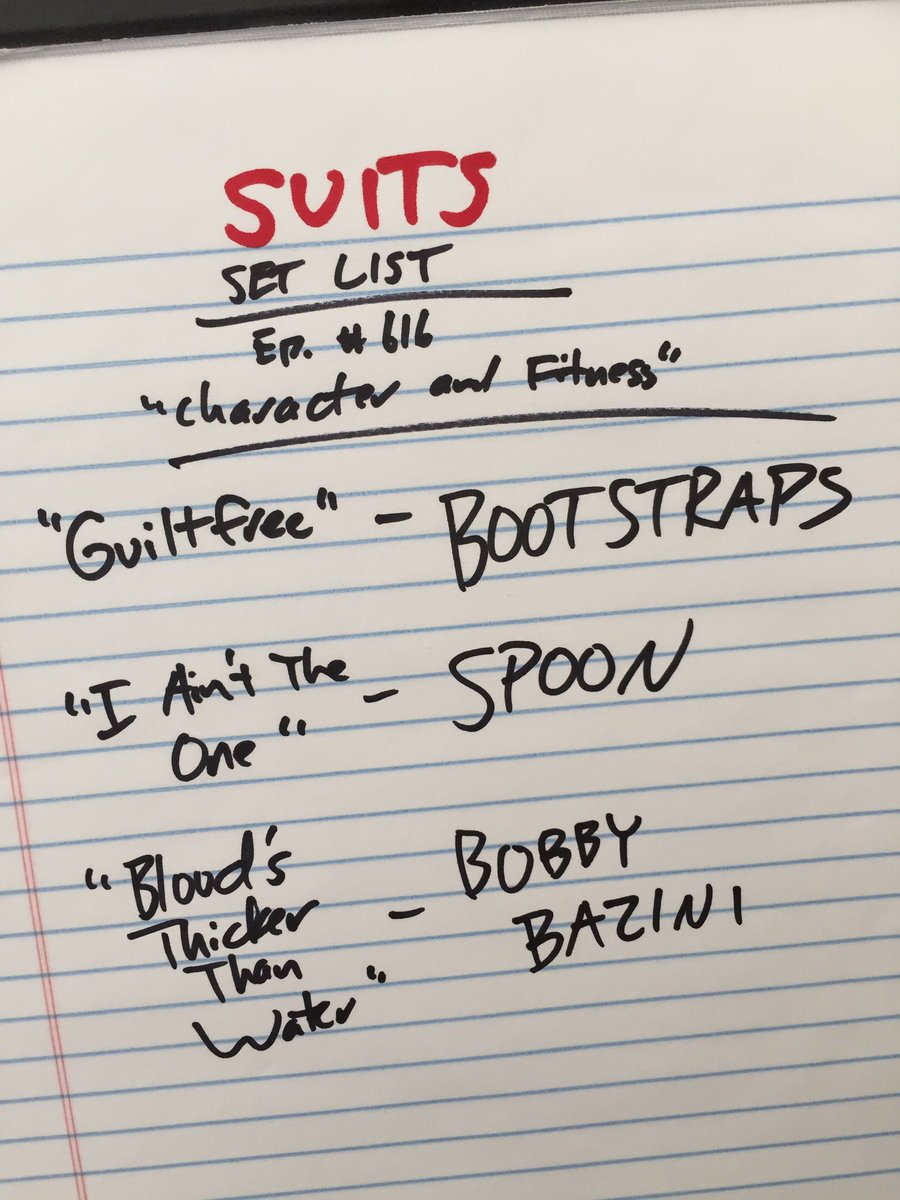 SUITS
SET LIST
Ep. #616
"Character and Fitness"
"Guiltfree" - BOOTSTRAPS
"I Ain't The - SPOON
One"
"Blood's - BOBBY
Thicker BAZINI
Than
Water"